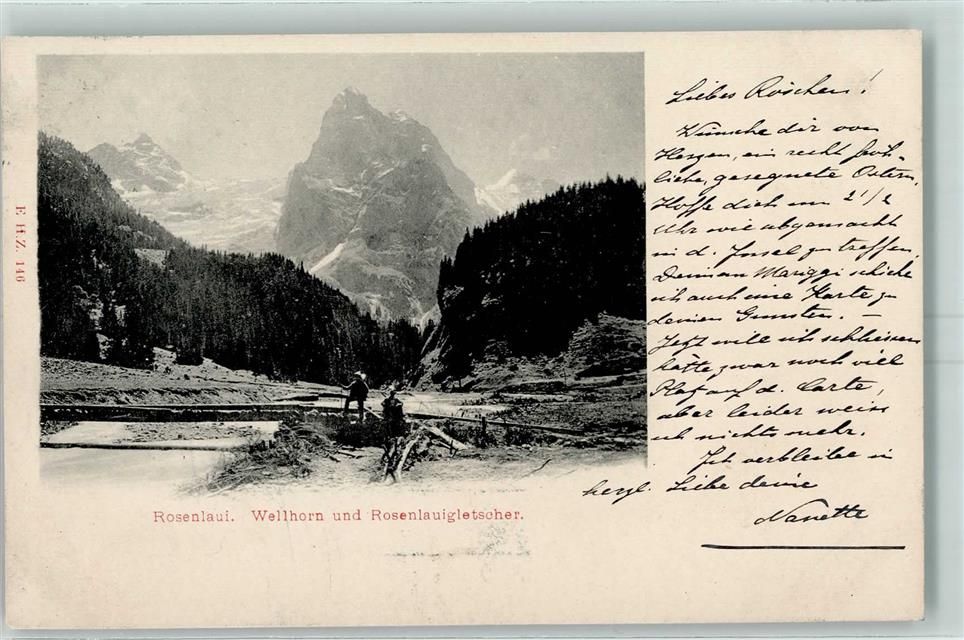 Liebes Röschen!
Wünsche dir von
Herzen, ein recht fröh-
liche, gesegnete Ostern.
Hoffe dich um 2 1/2
Uhr wie abgemacht
in d. Insel zu treffen,
Deinem Mariggi schicke
ich auch eine Karte zu
deinen Gunsten. —
Jetzt will ich schliessen
hätte zwar noch viel
Platz auf d. Carte,
aber leider weiss
ich nichts mehr.
Ich verbleibe in
herzl. Liebe deine
Nanette
E. H. Z. 146
Rosenlaui. Wellhorn und Rosenlauigletscher.